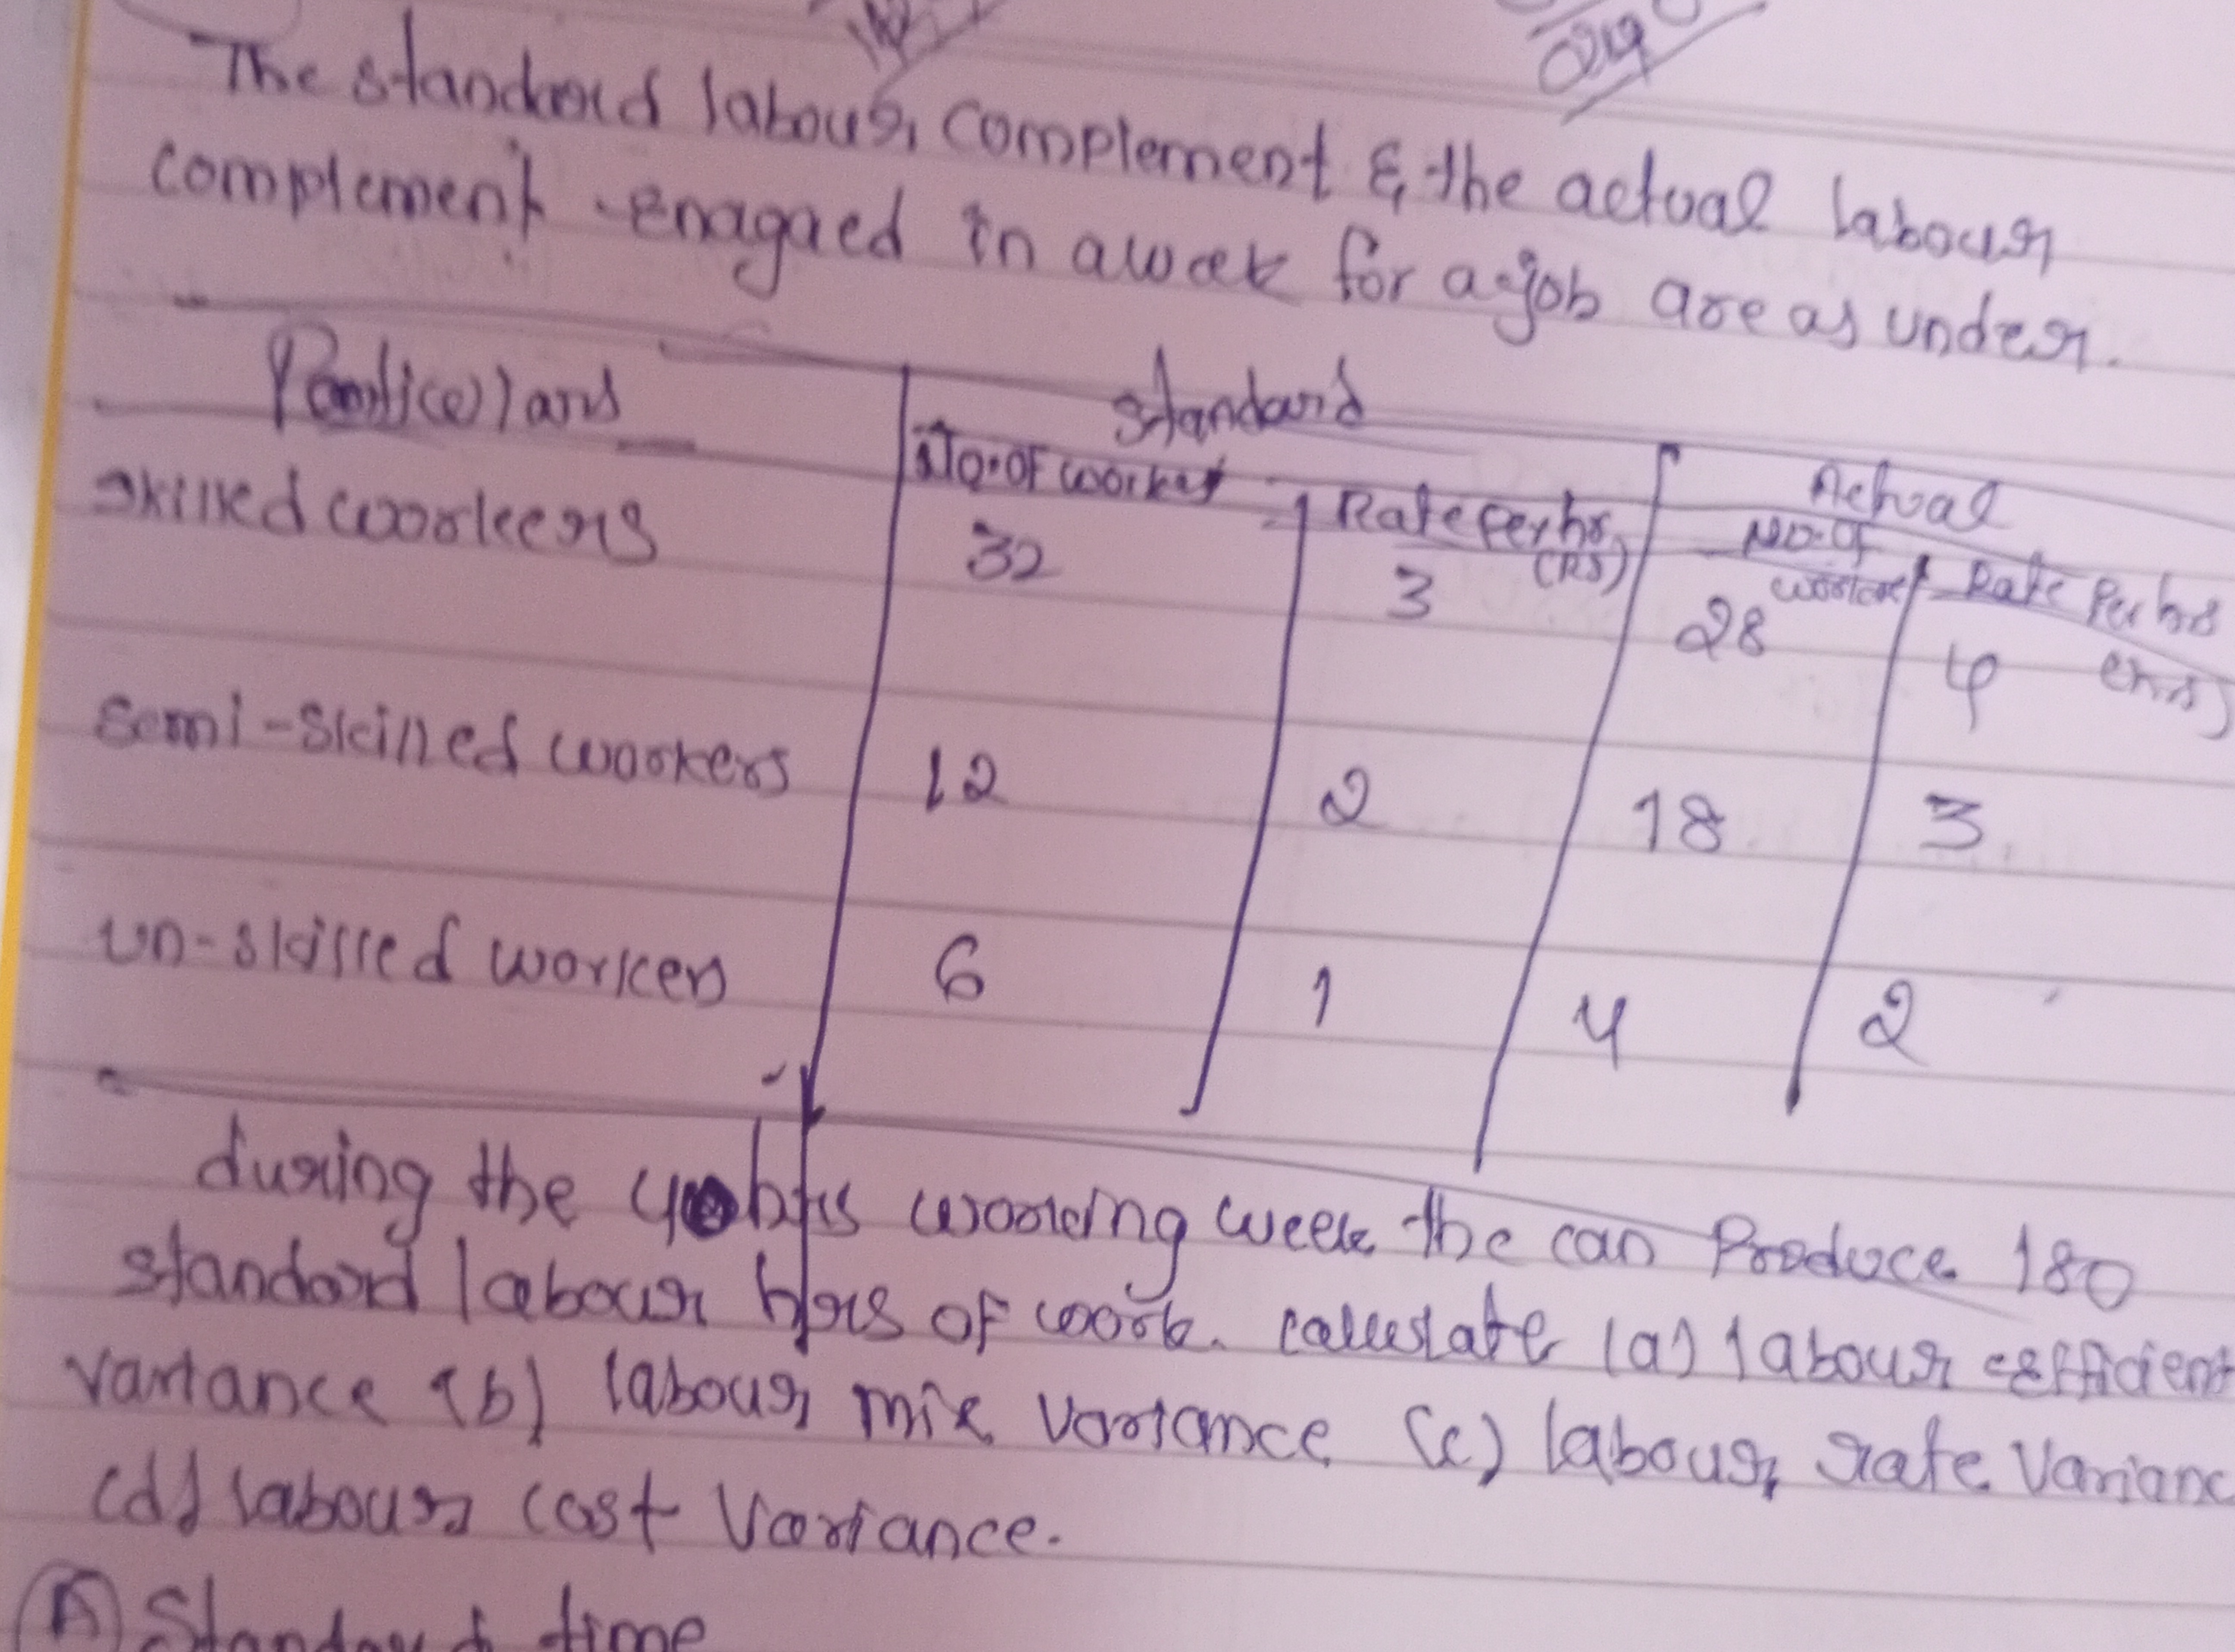 The standard labour complement & the actual labour
complement enagaed in a week for a job are as under.
Particulars Standard Actual
No. of worker Rate per hr (RS) No. of worker Rate per hrs
skilled workers 32 3 28 4
semi-skilled workers 12 2 18 3
un-skilled workers 6 1 4 2
during the 40 hrs working week the can Produce 180
standard labour hrs of work. calculate (a) labour efficient
variance (b) labour mix variance (c) labour rate varianc
(d) labour cost variance.
(A) Standard time